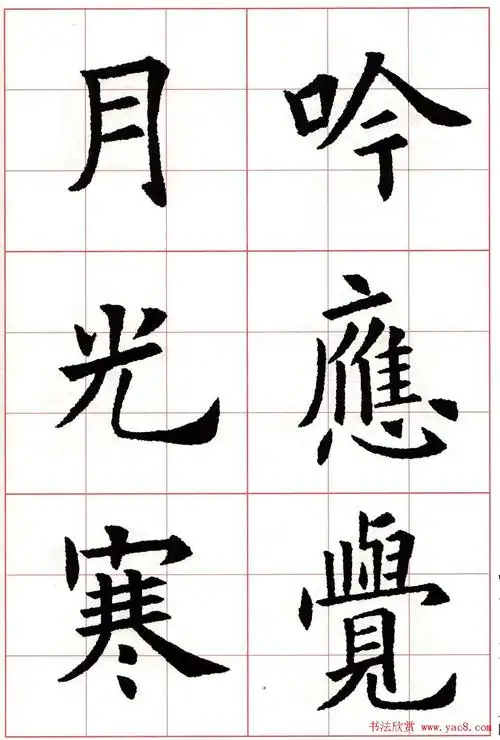 吟應覺
月光寒
书法欣赏 www.yac8.com